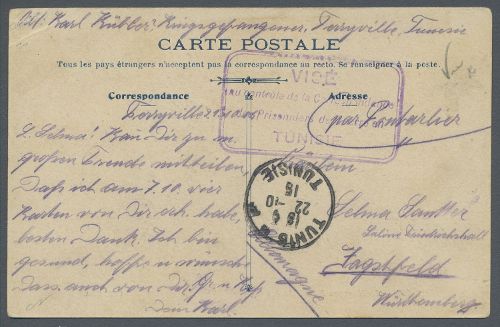 Karl Kübler, Kriegsgefangener, Ferryville, Tunesien
CARTE POSTALE
Tous les pays étrangers n'acceptent pas la correspondance au recto. Se renseigner à la poste.
Correspondance
Adresse
VISÉ
au contrôle de la
Prisonniers de
TUNISIE
Ferryville
par Pontarlier
L. Selma! Kann Dir zu m.
großen Freude mitteilen,
Daß ich am 7.10. vier
Karten von Dir erh. habe,
besten Dank. Ich bin
gesund, hoffe u. wünsche
Dass auch von dir. Gr. u. Kß
Dein Karl.
Fräulein
Selma
Jagstfeld
Württemberg
Allemagne
TUNIS
22 -10
15
TUNISIE